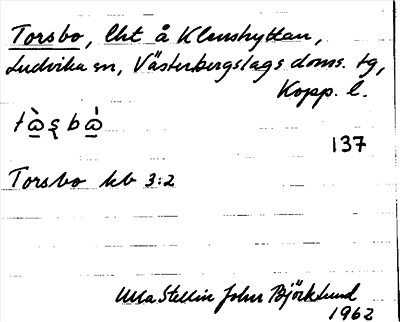 Torsbo, lht å Klenshyttan,
Ludvika sn, Västerbergslags doms. tg,
Kopp. l.
137
Torsbo kb 3:2
Ulla Stellin John Björklund
1962